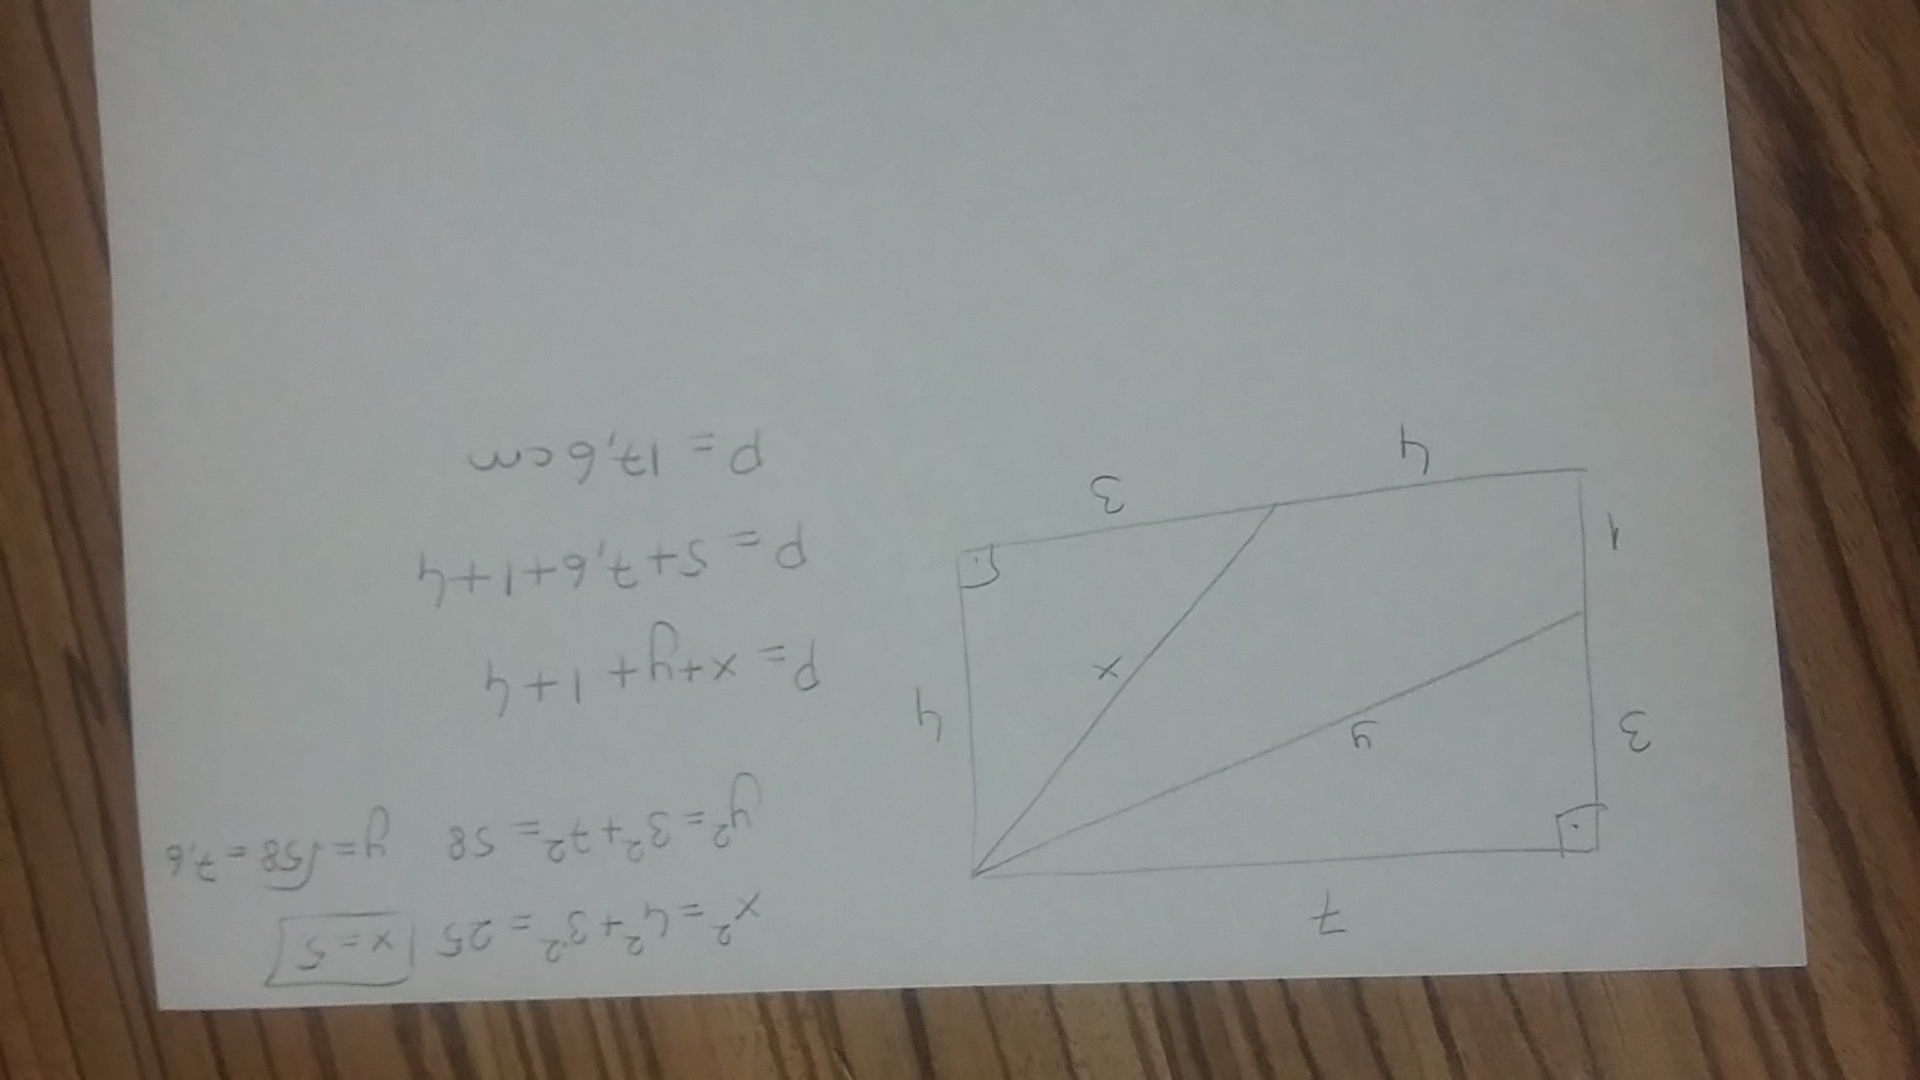 7
3
y
x
4
1
3
4
x² = 4² + 3² = 25 | x = 5
y² = 3² + 7² = 58 y = √58 = 7,6
P = x + y + 1 + 4
P = 5 + 7,6 + 1 + 4
P = 17,6 cm